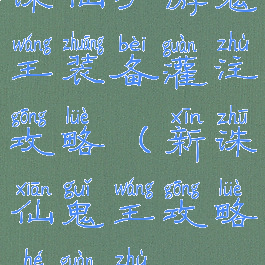 wáng zhuāng bèi guàn zhù
王装备灌注
gōng lüè xīn zhū
攻略（新诛
xiān guǐ wáng gōng lüè
仙鬼王攻略
hé guàn zhù